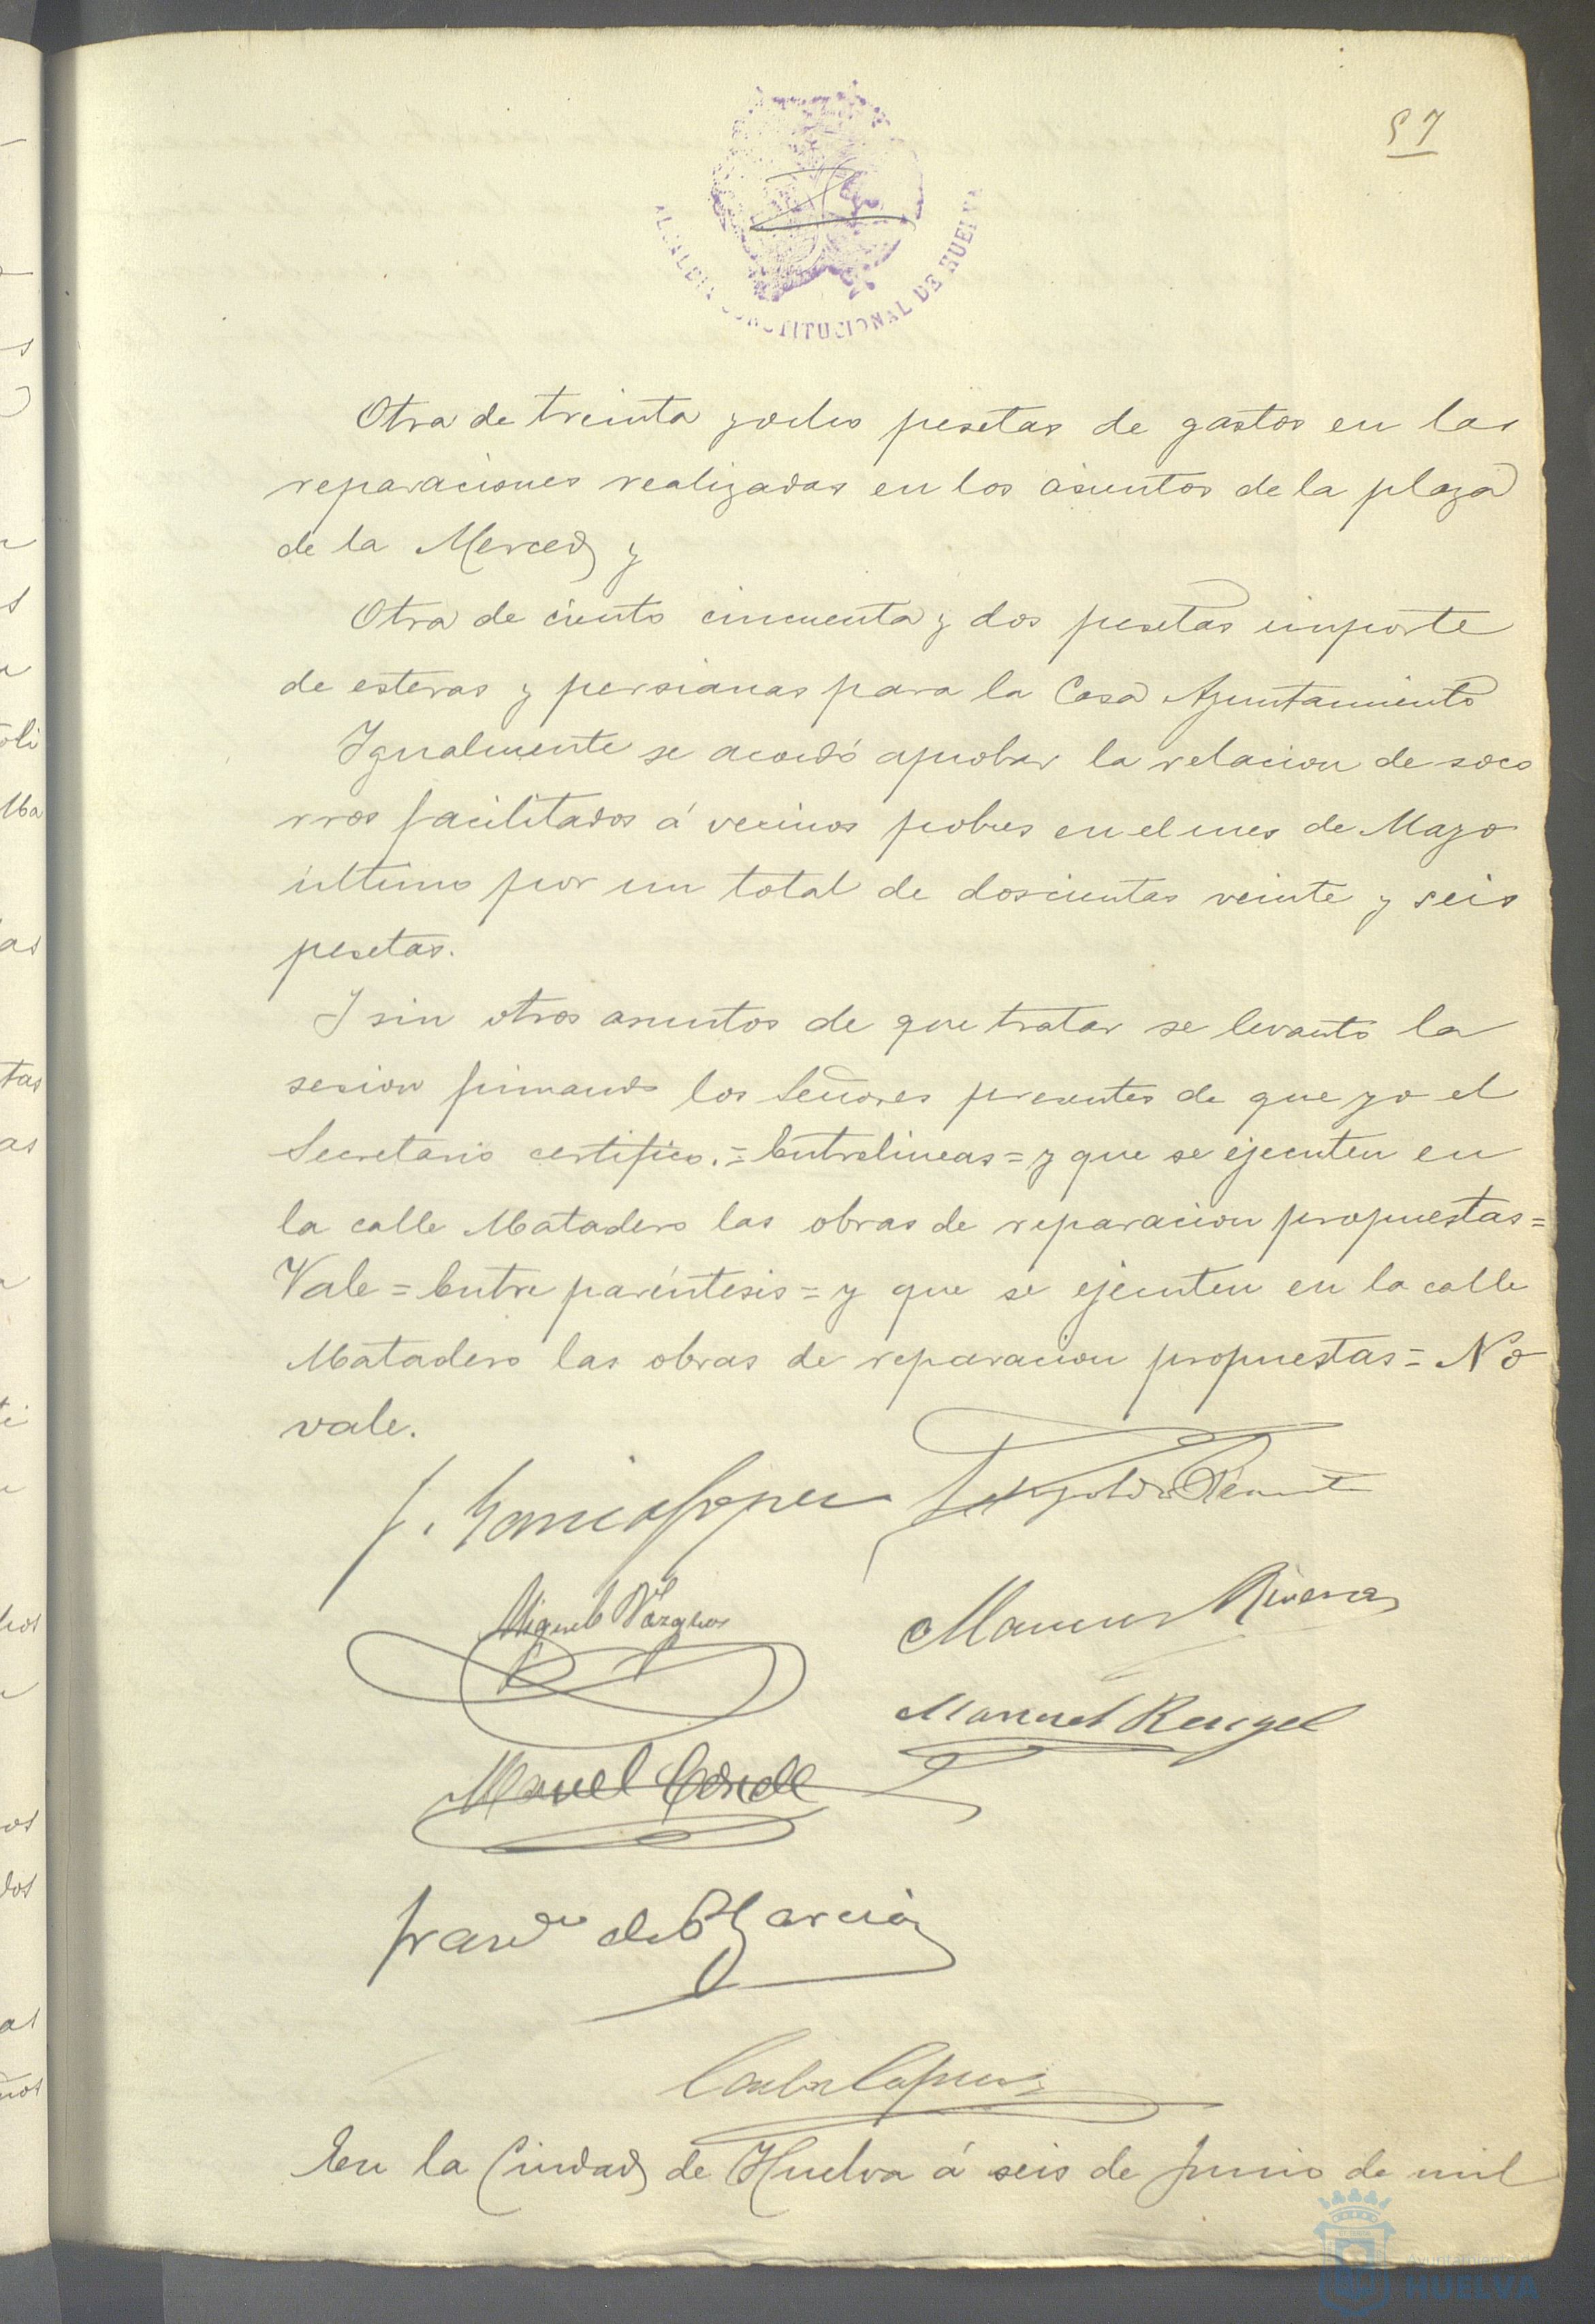 57
ALCALDIA CONSTITUCIONAL DE HUELVA
Otra de treinta y ocho pesetas de gastos en las
reparaciones realizadas en los asientos de la plaza
de la Merced y
Otra de ciento cincuenta y dos pesetas importe
de esteras y persianas para la Casa Ayuntamiento
Igualmente se acordó aprobar la relacion de soco
rros facilitados á vecinos pobres en el mes de Mayo
último por un total de doscientas veinte y seis
pesetas.
Y sin otros asuntos de que tratar se levantó la
sesion firmando los Señores presentes de que yo el
Secretario certifico.=Entrelineas=y que se ejecuten en
la calle Matadero las obras de reparacion propuestas=
Vale=Entre paréntesis=y que se ejecuten en la calle
Matadero las obras de reparacion propuestas=No
vale.
J. Garcia Lopez
Miguel Vázquez
Rivera
Manuel Rengel
Manuel Conde
Garcia
En la Ciudad de Huelva á seis de Junio de mil
Ayuntamiento
HUELVA